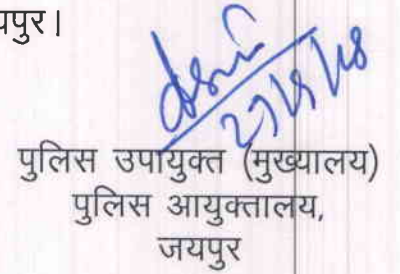 यपुर।
पुलिस उपायुक्त (मुख्यालय)
पुलिस आयुक्तालय,
जयपुर